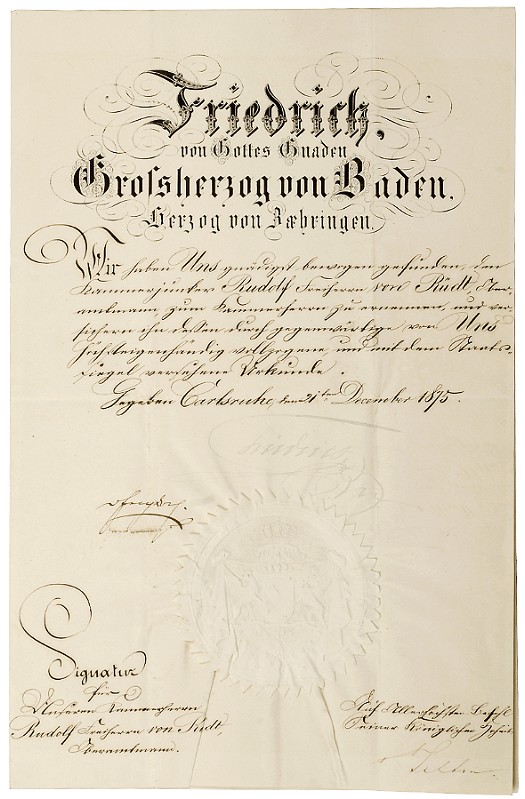 Friedrich,
von Gottes Gnaden
Grossherzog von Baden,
Herzog von Zæhringen.
Wir haben Uns gnädigst bewogen gefunden, den
Kammerjunker Rudolf Freiherrn von Rüdt, Ober-
amtmann zum Kammerherrn zu ernennen, und ver-
sichern ihn dessen durch gegenwärtige von Uns
höchsteigenhändig vollzogene und mit dem Staats-
siegel versehene Urkunde.
Gegeben Carlsruhe, den 21ten December 1875.
Friedrich
Signatur
für
Unseren Kammerherrn
Rudolf Freiherrn von Rüdt,
Oberamtmann.
Auf Allerhöchsten Befehl
Seiner Königlichen Hoheit